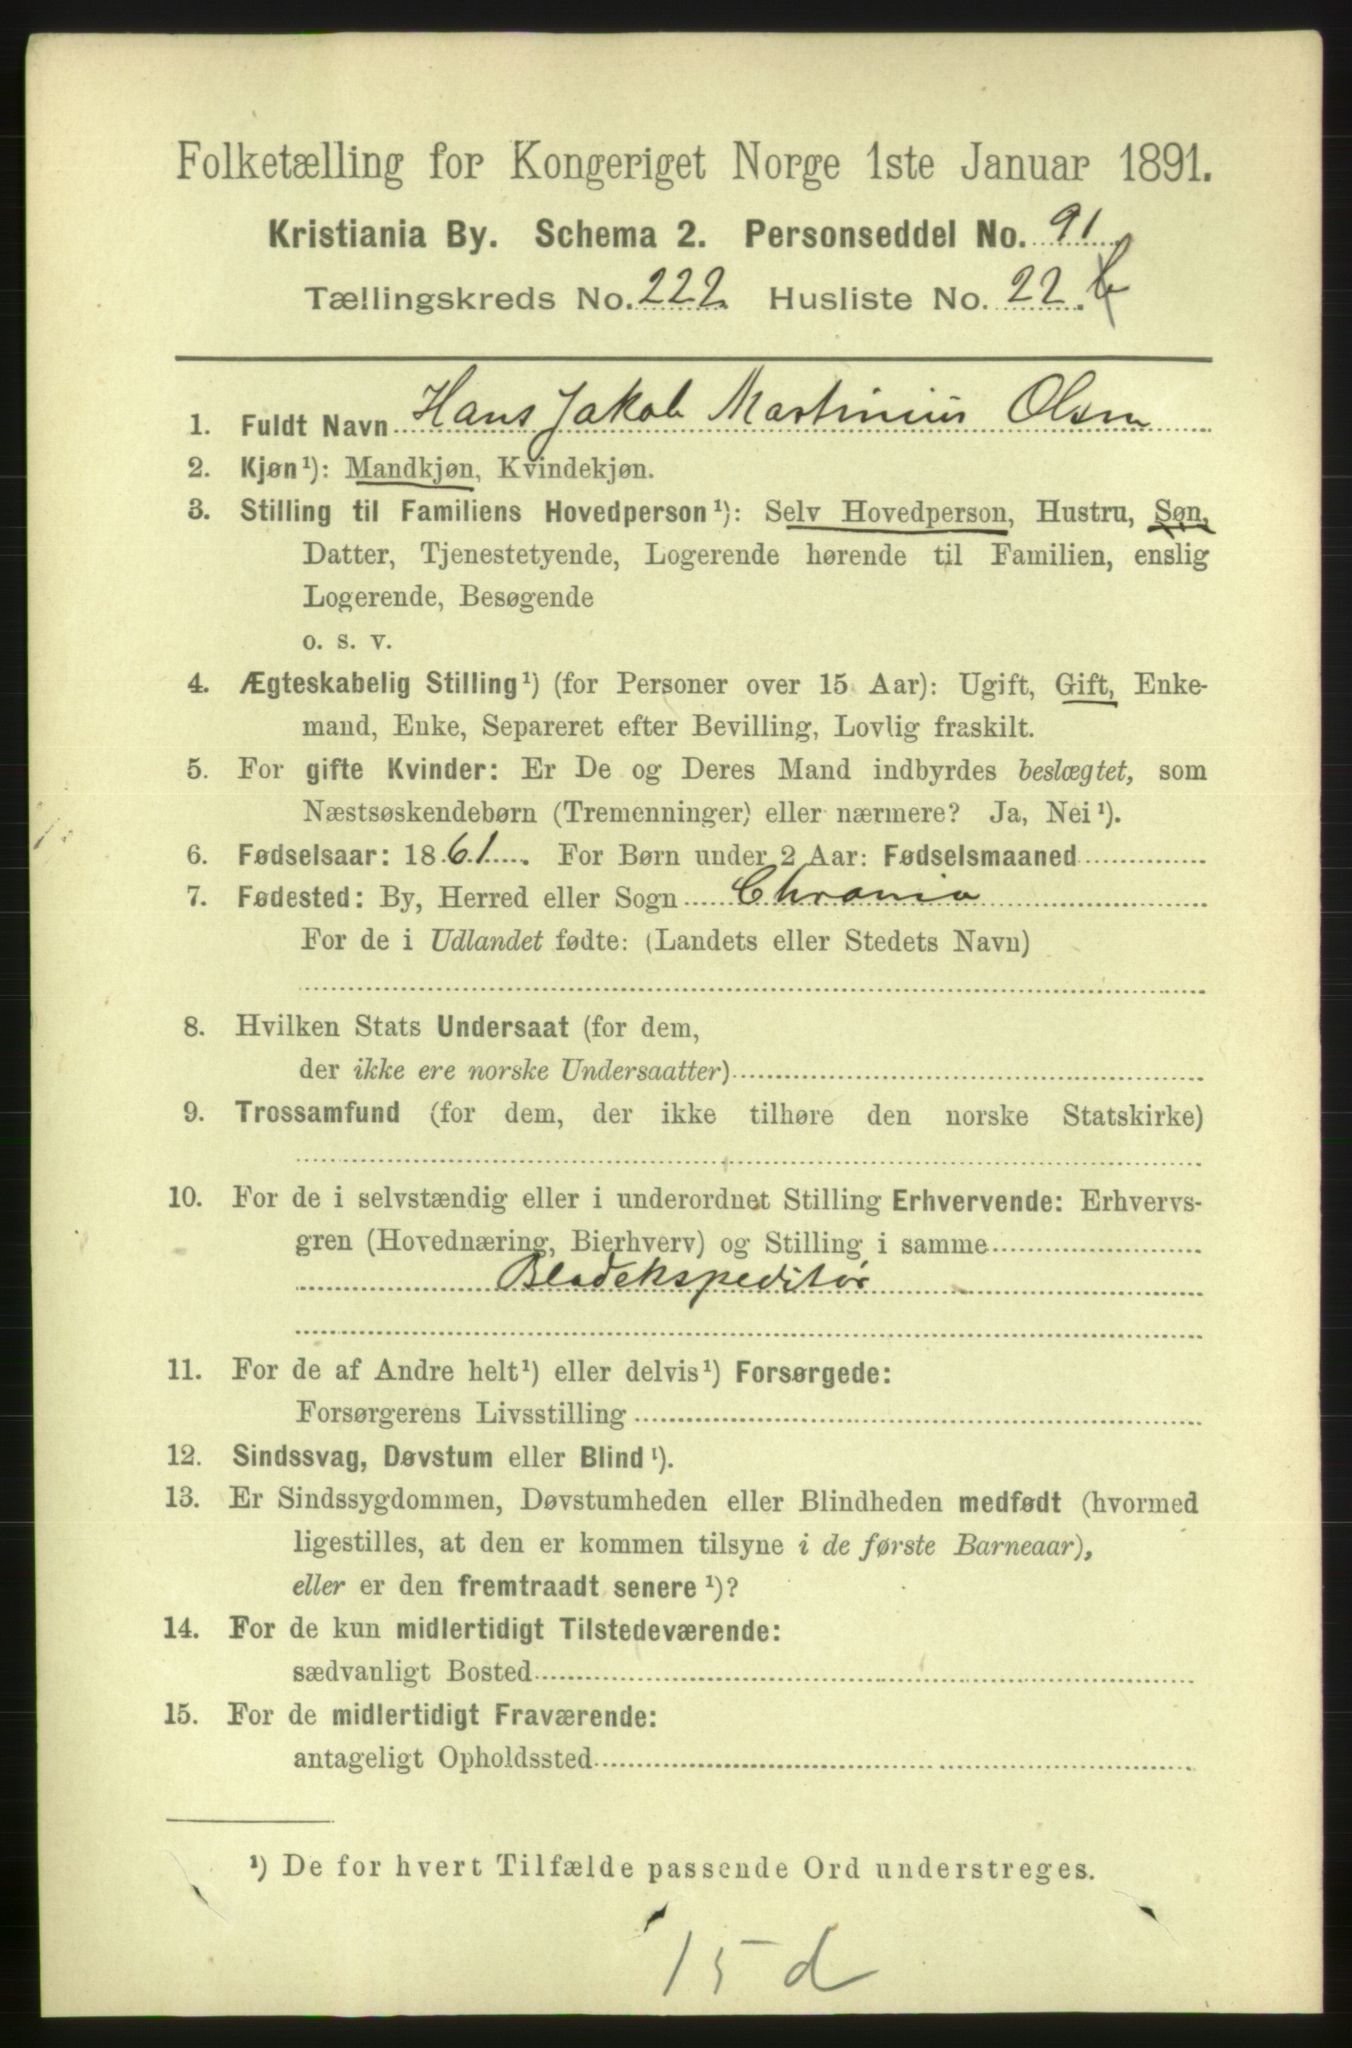 Folketælling for Kongeriget Norge 1ste Januar 1891.
Kristiania By. Schema 2. Personseddel No. 91.
Tællingskreds No. 222 Husliste No. 22. b
1. Fuldt Navn Hans Jakob Martinius Olsen
2. Kjøn¹): Mandkjøn, Kvindekjøn.
3. Stilling til Familiens Hovedperson¹): Selv Hovedperson, Hustru, Søn,
Datter, Tjenestetyende, Logerende hørende til Familien, enslig
Logerende, Besøgende
o. s. v.
4. Ægteskabelig Stilling¹) (for Personer over 15 Aar): Ugift, Gift, Enke-
mand, Enke, Separeret efter Bevilling, Lovlig fraskilt.
5. For gifte Kvinder: Er De og Deres Mand indbyrdes beslægtet, som
Næstsøskendebørn (Tremenninger) eller nærmere? Ja, Nei¹).
6. Fødselsaar: 1861. For Børn under 2 Aar: Fødselsmaaned
7. Fødested: By, Herred eller Sogn Chrania
For de i Udlandet fødte: (Landets eller Stedets Navn)
8. Hvilken Stats Undersaat (for dem,
der ikke ere norske Undersaatter)
9. Trossamfund (for dem, der ikke tilhøre den norske Statskirke)
10. For de i selvstændig eller i underordnet Stilling Erhvervende: Erhvervs-
gren (Hovednæring, Bierhverv) og Stilling i samme
Bladekspeditør
11. For de af Andre helt¹) eller delvis¹) Forsørgede:
Forsørgerens Livsstilling
12. Sindssvag, Døvstum eller Blind¹).
13. Er Sindssygdommen, Døvstumheden eller Blindheden medfødt (hvormed
ligestilles, at den er kommen tilsyne i de første Barneaar),
eller er den fremtraadt senere¹)?
14. For de kun midlertidigt Tilstedeværende:
sædvanligt Bosted
15. For de midlertidigt Fraværende:
antageligt Opholdssted
¹) De for hvert Tilfælde passende Ord understreges.
15 d